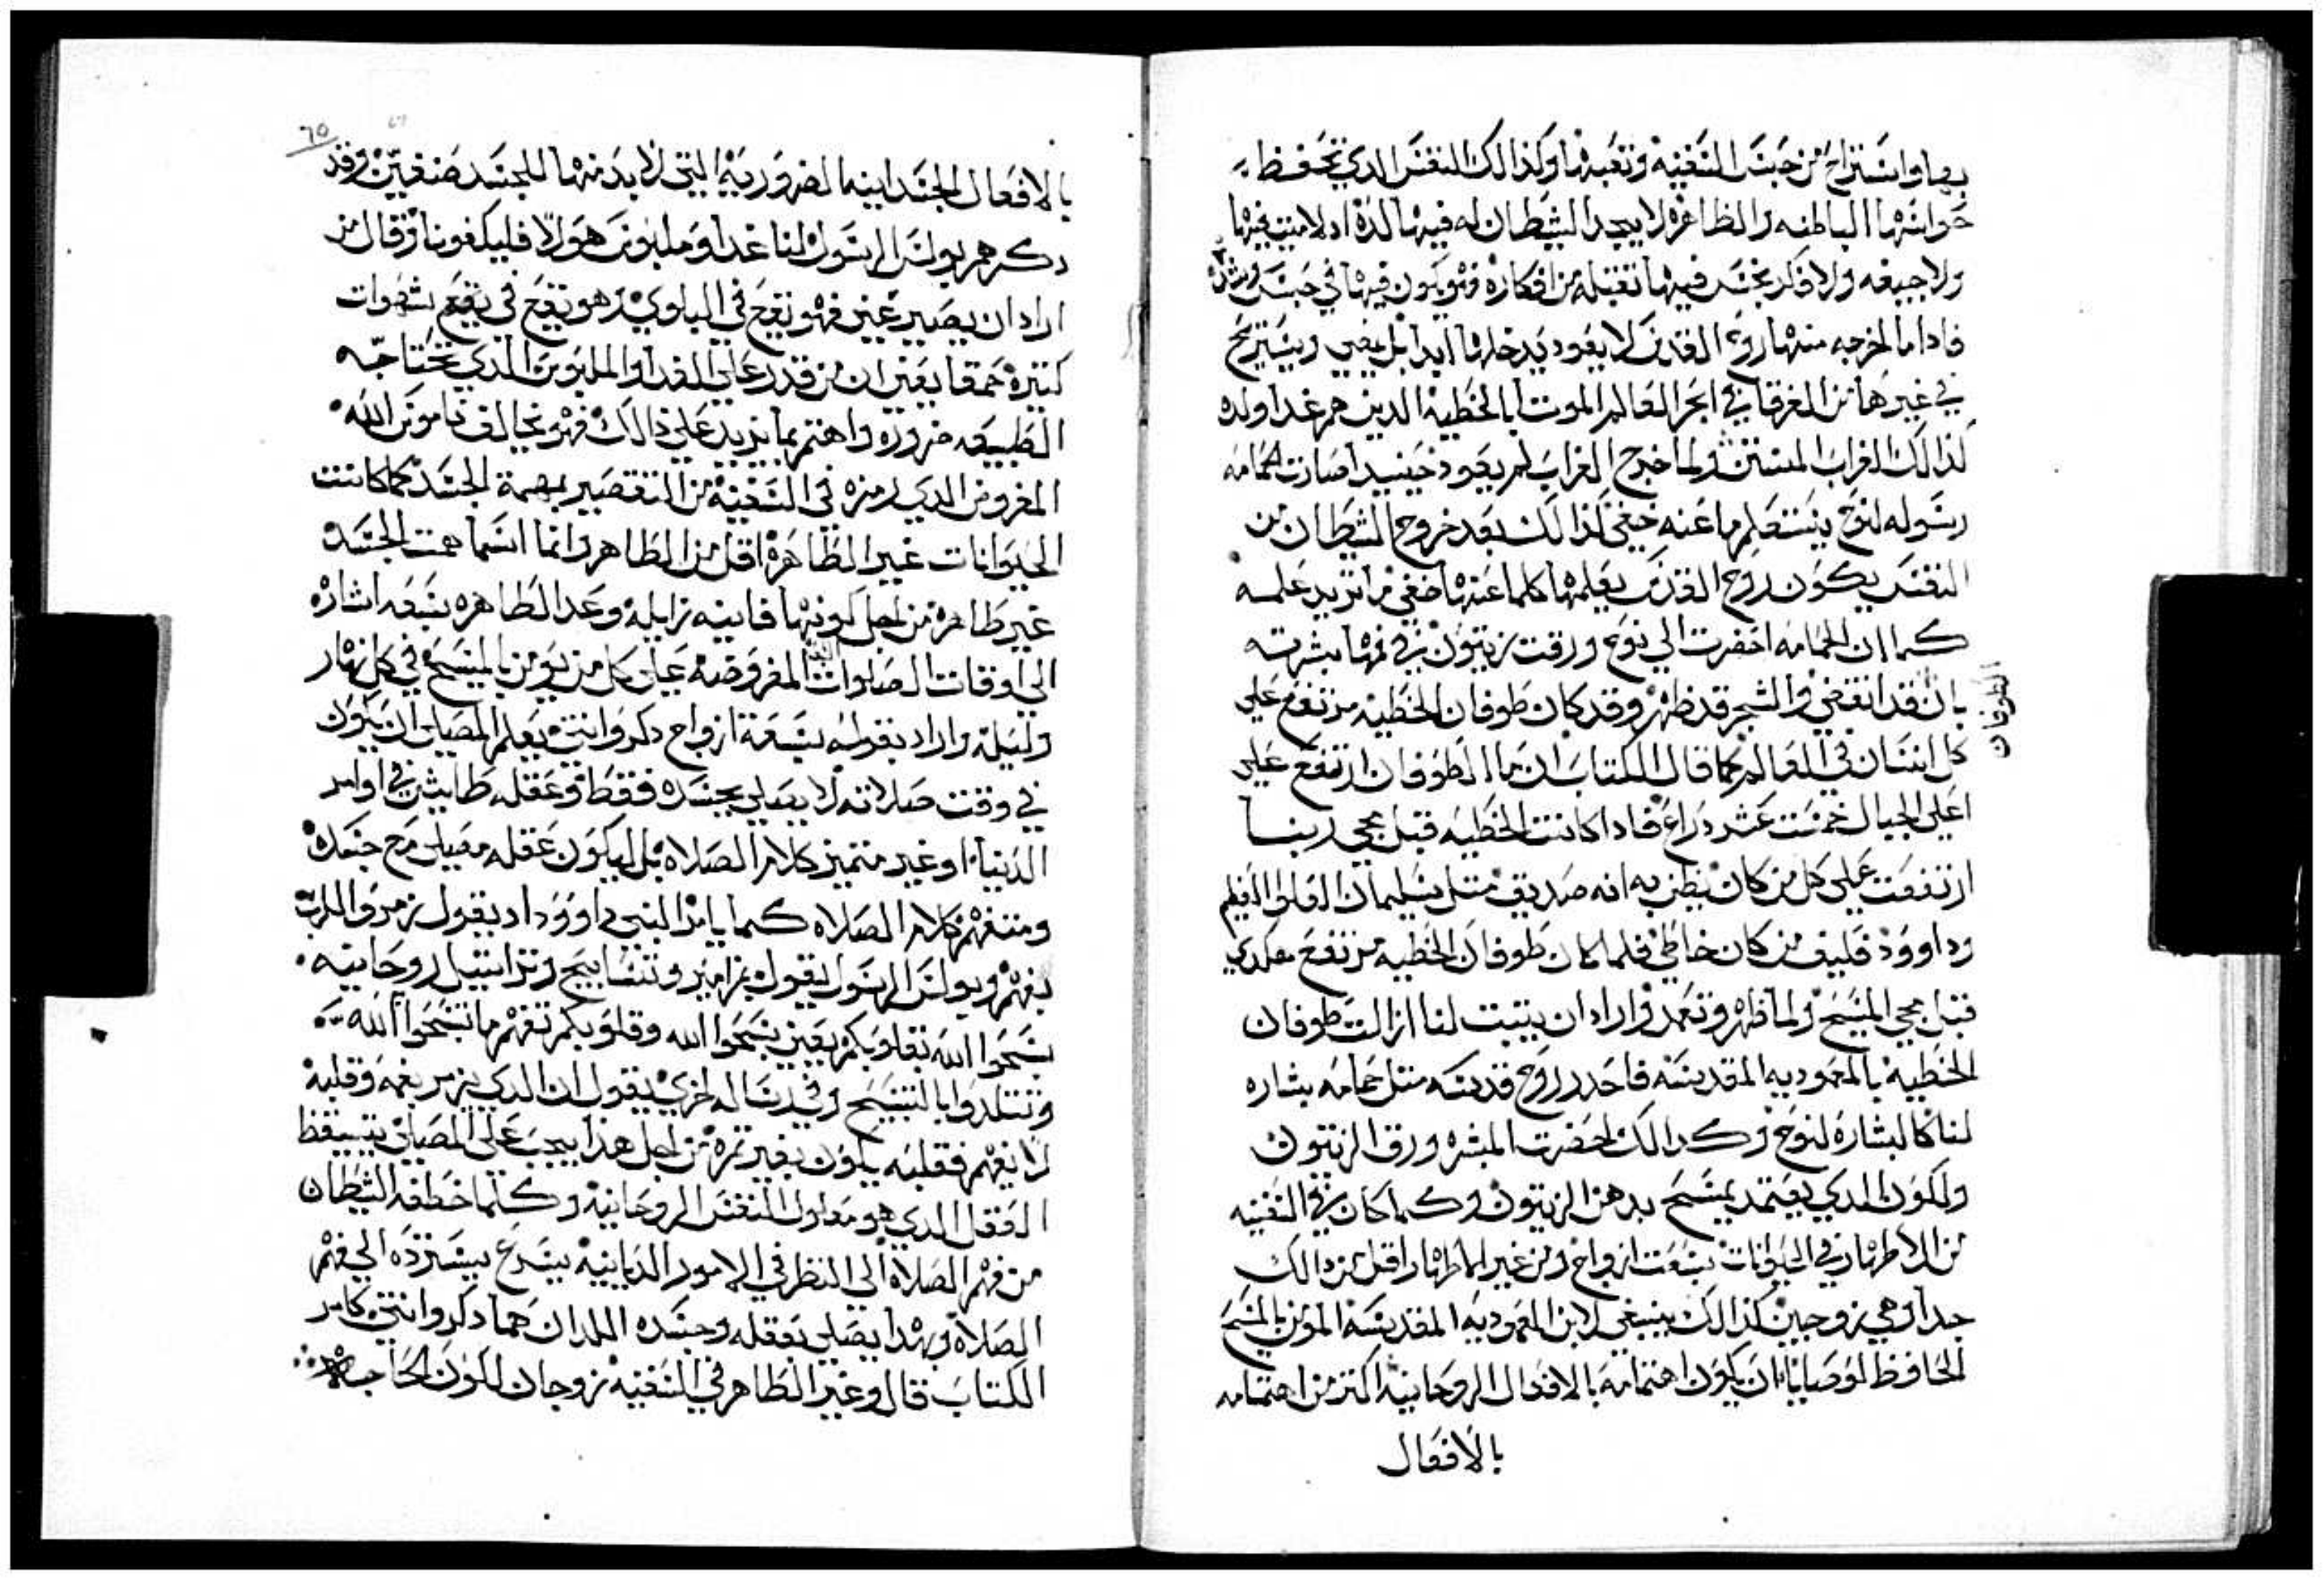 بها واستراح من حبس السفينه وتعبها وكذالك النفس الدي تحفظ
حواسها الباطنه والظاهره لا يجد الشيطان له فيها لذة اذ لا ميت فيها
ولا جيفه ولا فكر نجس فيها تقبله من افكاره فهو يكون فيها في حبس وشده
فاداما اخرجه منها روح القدس لا يعود يدخلها ابدا بل يمضي ويستريح
في غيرها من الغرقا في ابحر العالم الموتا بالخطية الدين هم غدا ولده
كذالك الغراب المنتن ولما خرج الغراب لم يعود حينيد صارت الحمامه
رسوله لنوح يستعلم ما عنه خفي كذالك بعد خروج الشيطان من
النفس يكون روح القدس يعلمها كلما عنها خفي مما تريد علمه
كما ان الحمامه احضرت الي نوح ورقت زيتون في فمها بشرته
بان قد انقضي والشجر قد ظهر وقد كان طوفان الخطيه مرتفع علي
الطوفان
كل انسان في العالم كما قال الكتاب ان ما الطوفان ارتفع علي
اعلي الجبال خمست عشر دراع فاداكانت الخطيه قبل مجي ربنا
ارتفعت علي كل من كان يظن به انه صديق مثل سليمان المملوا
وداوود فكيف من كان خاطي فلما كان طوفان الخطيه مرتفع هكدي
قبل مجي المسيح ولما ظهر وتعمد واراد ان يتبت لنا ازالت طوفان
الخطيه بالمعموديه المقدسه فاحدر روح قدسه متل حمامه بشاره
لنا كالبشاره لنوح وكدالك احضرت المبشره ورق الزيتون
ولكون الدي يعتمد يمسح بدهن الزيتون وكما كان في السفينه
من الاطهار في الحيوانات سبعت ازواج ومن غير الاطهار اقل من دالك
جدا وهي زوجين كذالك ينبغي لابن المعموديه المقدسه المومن بالمسيح
الحافظ لوصاياه ان يكون اهتمامه بالافعال الروحانيه اكتر من اهتمامه
بالافعال
٦٥
بالافعال الجسدانيه الضروريه التي لا بد منها للجسد صنفين وقد
دكرهم بولس الرسول لنا غدا وملبوس هولا فليكفونا وقال من
اراد ان يصير غني فهو يقع في البلوي وهو يقع في شهوات
كتيره حمقا يعني ان من قدر علي الغدا والملبوس الدي تحتاجه
الطبيعه ضروره واهتم بما يزيد علي ذالك فهو مخالف ناموس الله
المفروض الدي رمزه في السفينه من التقصير بهمة الجسد كما كانت
الحيوانات غير الطاهرة اقل من الطاهر وانما اسما همت الجسد
غير طاهره من اجل كونها فانيه زايله وعد الطاهره سبعه اشاره
الي اوقات الصلوات المفروضه علي كل من يومن بالمسيح في كل نهار
وليله واراد بقوله سبعة ازواج دكر وانتي يعلم المصلي ان يكون
في وقت صلاته لا يصلي بجسده فقط وعقله طايش في اوامر
الدنيا او غير متميز كلام الصلاه بل ليكون عقله مصلي مع جسده
ومتفهم كلام الصلاه كما يامر النبي داوود اد يقول زمروا للرب
بفهم وبولس الرسول يقول بمزامير وتسابيح وتراتيل روحانيه
سبحوا الله بقلوبكم يعني سبحوا الله وقلوبكم تفهم ما تسبحوا الله
وتتلدوا بالتسبيح وفي رساله اخري يقول ان الدي يزمر بفمه وقلبه
لا يفهم فقلبه يكون بغير تمره من اجل هذا يجب علي المصلي يتيقظ
العقل الدي هو مدلول النفس الروحانيه وكلما خطفه الشيطان
من فهم الصلاة الي النظر في الامور الدنيانيه يسرع يسترده الي فهم
الصلاة وبهدا يصلي بعقله وجسده اللدان هما دكر وانتي كامر
الكتاب قال وغير الطاهر في السفينه زوجان لكون الحاجه